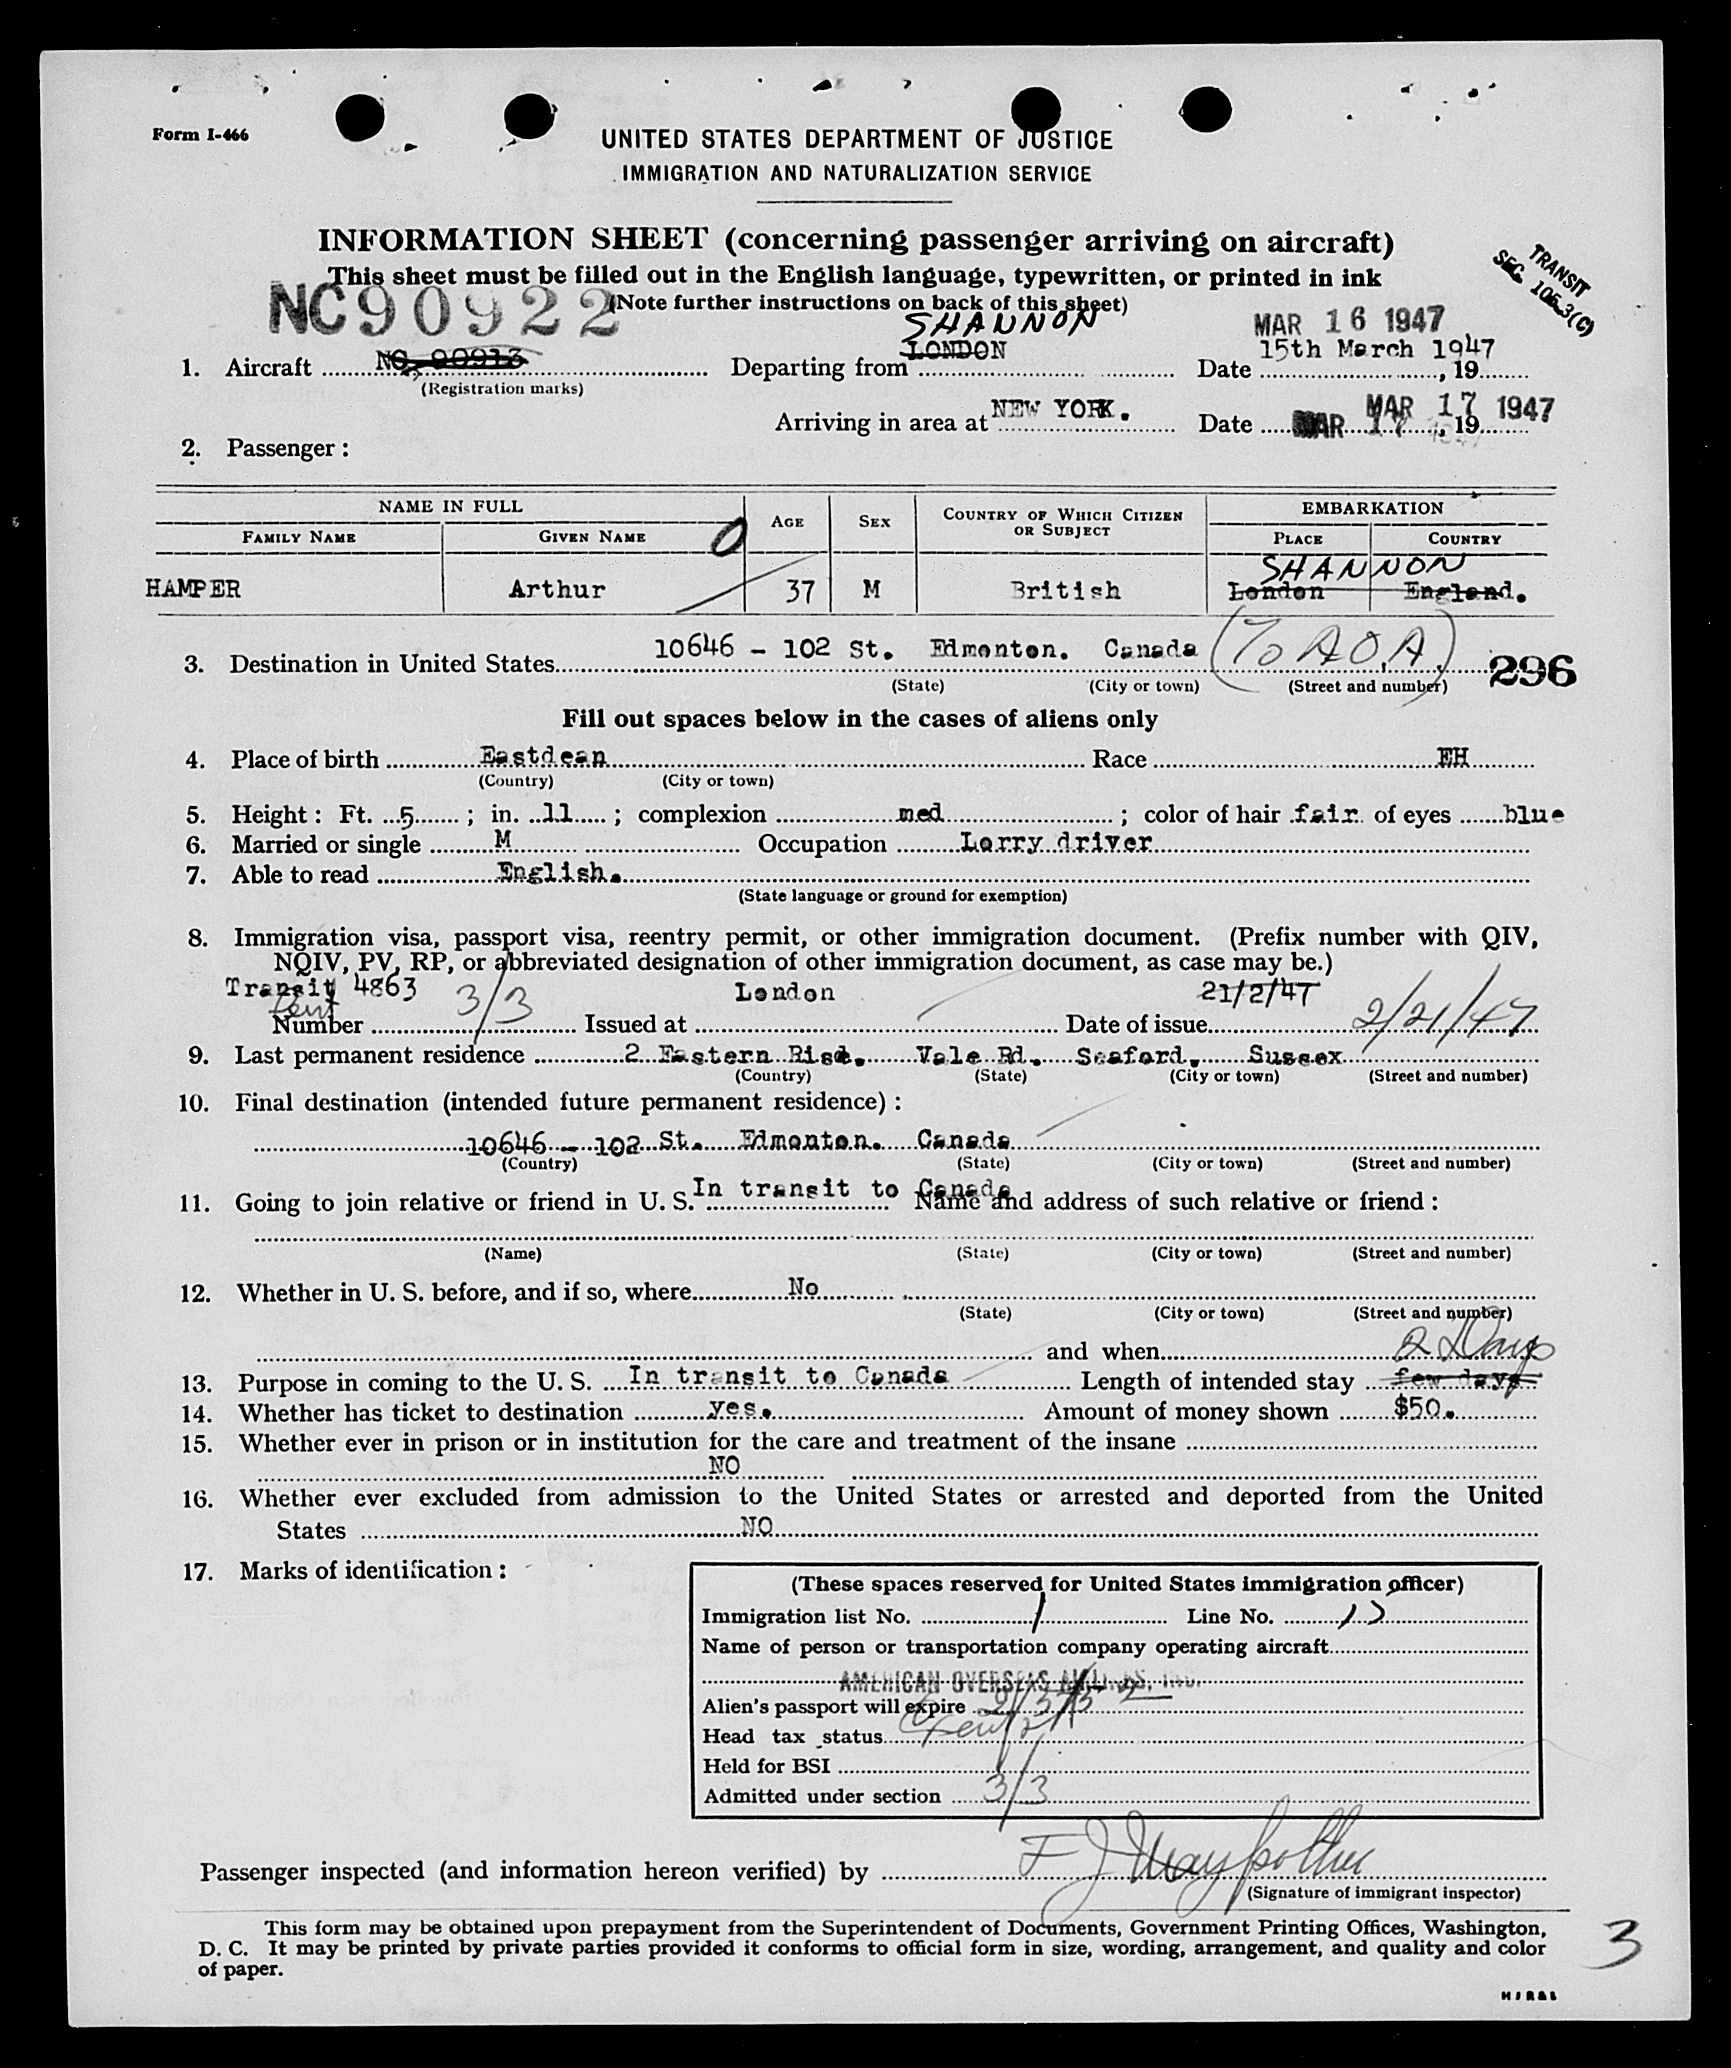 Form I-466
UNITED STATES DEPARTMENT OF JUSTICE
IMMIGRATION AND NATURALIZATION SERVICE
INFORMATION SHEET (concerning passenger arriving on aircraft)
This sheet must be filled out in the English language, typewritten, or printed in ink
(Note further instructions on back of this sheet)
TRANSIT
SEC. 105.3(C)
NC90922
SHANNON
MAR 16 1947
1. Aircraft NC, 90913 Departing from LONDON Date 15th March 1947, 19
(Registration marks)
Arriving in area at NEW YORK. Date MAR 17 1947, 19 MAR 17 1947
2. Passenger:
NAME IN FULL AGE SEX COUNTRY OF WHICH CITIZEN OR SUBJECT EMBARKATION
FAMILY NAME GIVEN NAME PLACE COUNTRY
0
SHANNON
HAMPER Arthur 37 M British London England.
3. Destination in United States 10646 - 102 St. Edmonton. Canada (To A.O.A.) 296
(State) (City or town) (Street and number)
Fill out spaces below in the cases of aliens only
4. Place of birth Eastdean Race EH
(Country) (City or town)
5. Height: Ft. 5; in. 11; complexion med; color of hair fair of eyes blue
6. Married or single M Occupation Lorry driver
7. Able to read English.
(State language or ground for exemption)
8. Immigration visa, passport visa, reentry permit, or other immigration document. (Prefix number with QIV,
NQIV, PV, RP, or abbreviated designation of other immigration document, as case may be.)
Transit 4863 3/3 London 21/2/47
Number Issued at Date of issue 2/21/47
9. Last permanent residence 2 Eastern Rise. Vale Rd. Seaford, Sussex
(Country) (State) (City or town) (Street and number)
10. Final destination (intended future permanent residence):
10646 - 102 St. Edmonton. Canada
(Country) (State) (City or town) (Street and number)
11. Going to join relative or friend in U. S. In transit to Canada Name and address of such relative or friend:
(Name) (State) (City or town) (Street and number)
12. Whether in U. S. before, and if so, where No
(State) (City or town) (Street and number)
and when
2 Days
13. Purpose in coming to the U. S. In transit to Canada Length of intended stay few days
14. Whether has ticket to destination yes. Amount of money shown $50.
15. Whether ever in prison or in institution for the care and treatment of the insane
NO
16. Whether ever excluded from admission to the United States or arrested and deported from the United
States NO
17. Marks of identification:
(These spaces reserved for United States immigration officer)
Immigration list No. 1 Line No.
Name of person or transportation company operating aircraft
AMERICAN OVERSEAS AIRLINES, INC.
Alien's passport will expire
Head tax status
Held for BSI
Admitted under section 3/3
Passenger inspected (and information hereon verified) by
(Signature of immigrant inspector)
This form may be obtained upon prepayment from the Superintendent of Documents, Government Printing Offices, Washington,
D. C. It may be printed by private parties provided it conforms to official form in size, wording, arrangement, and quality and color
of paper.
3